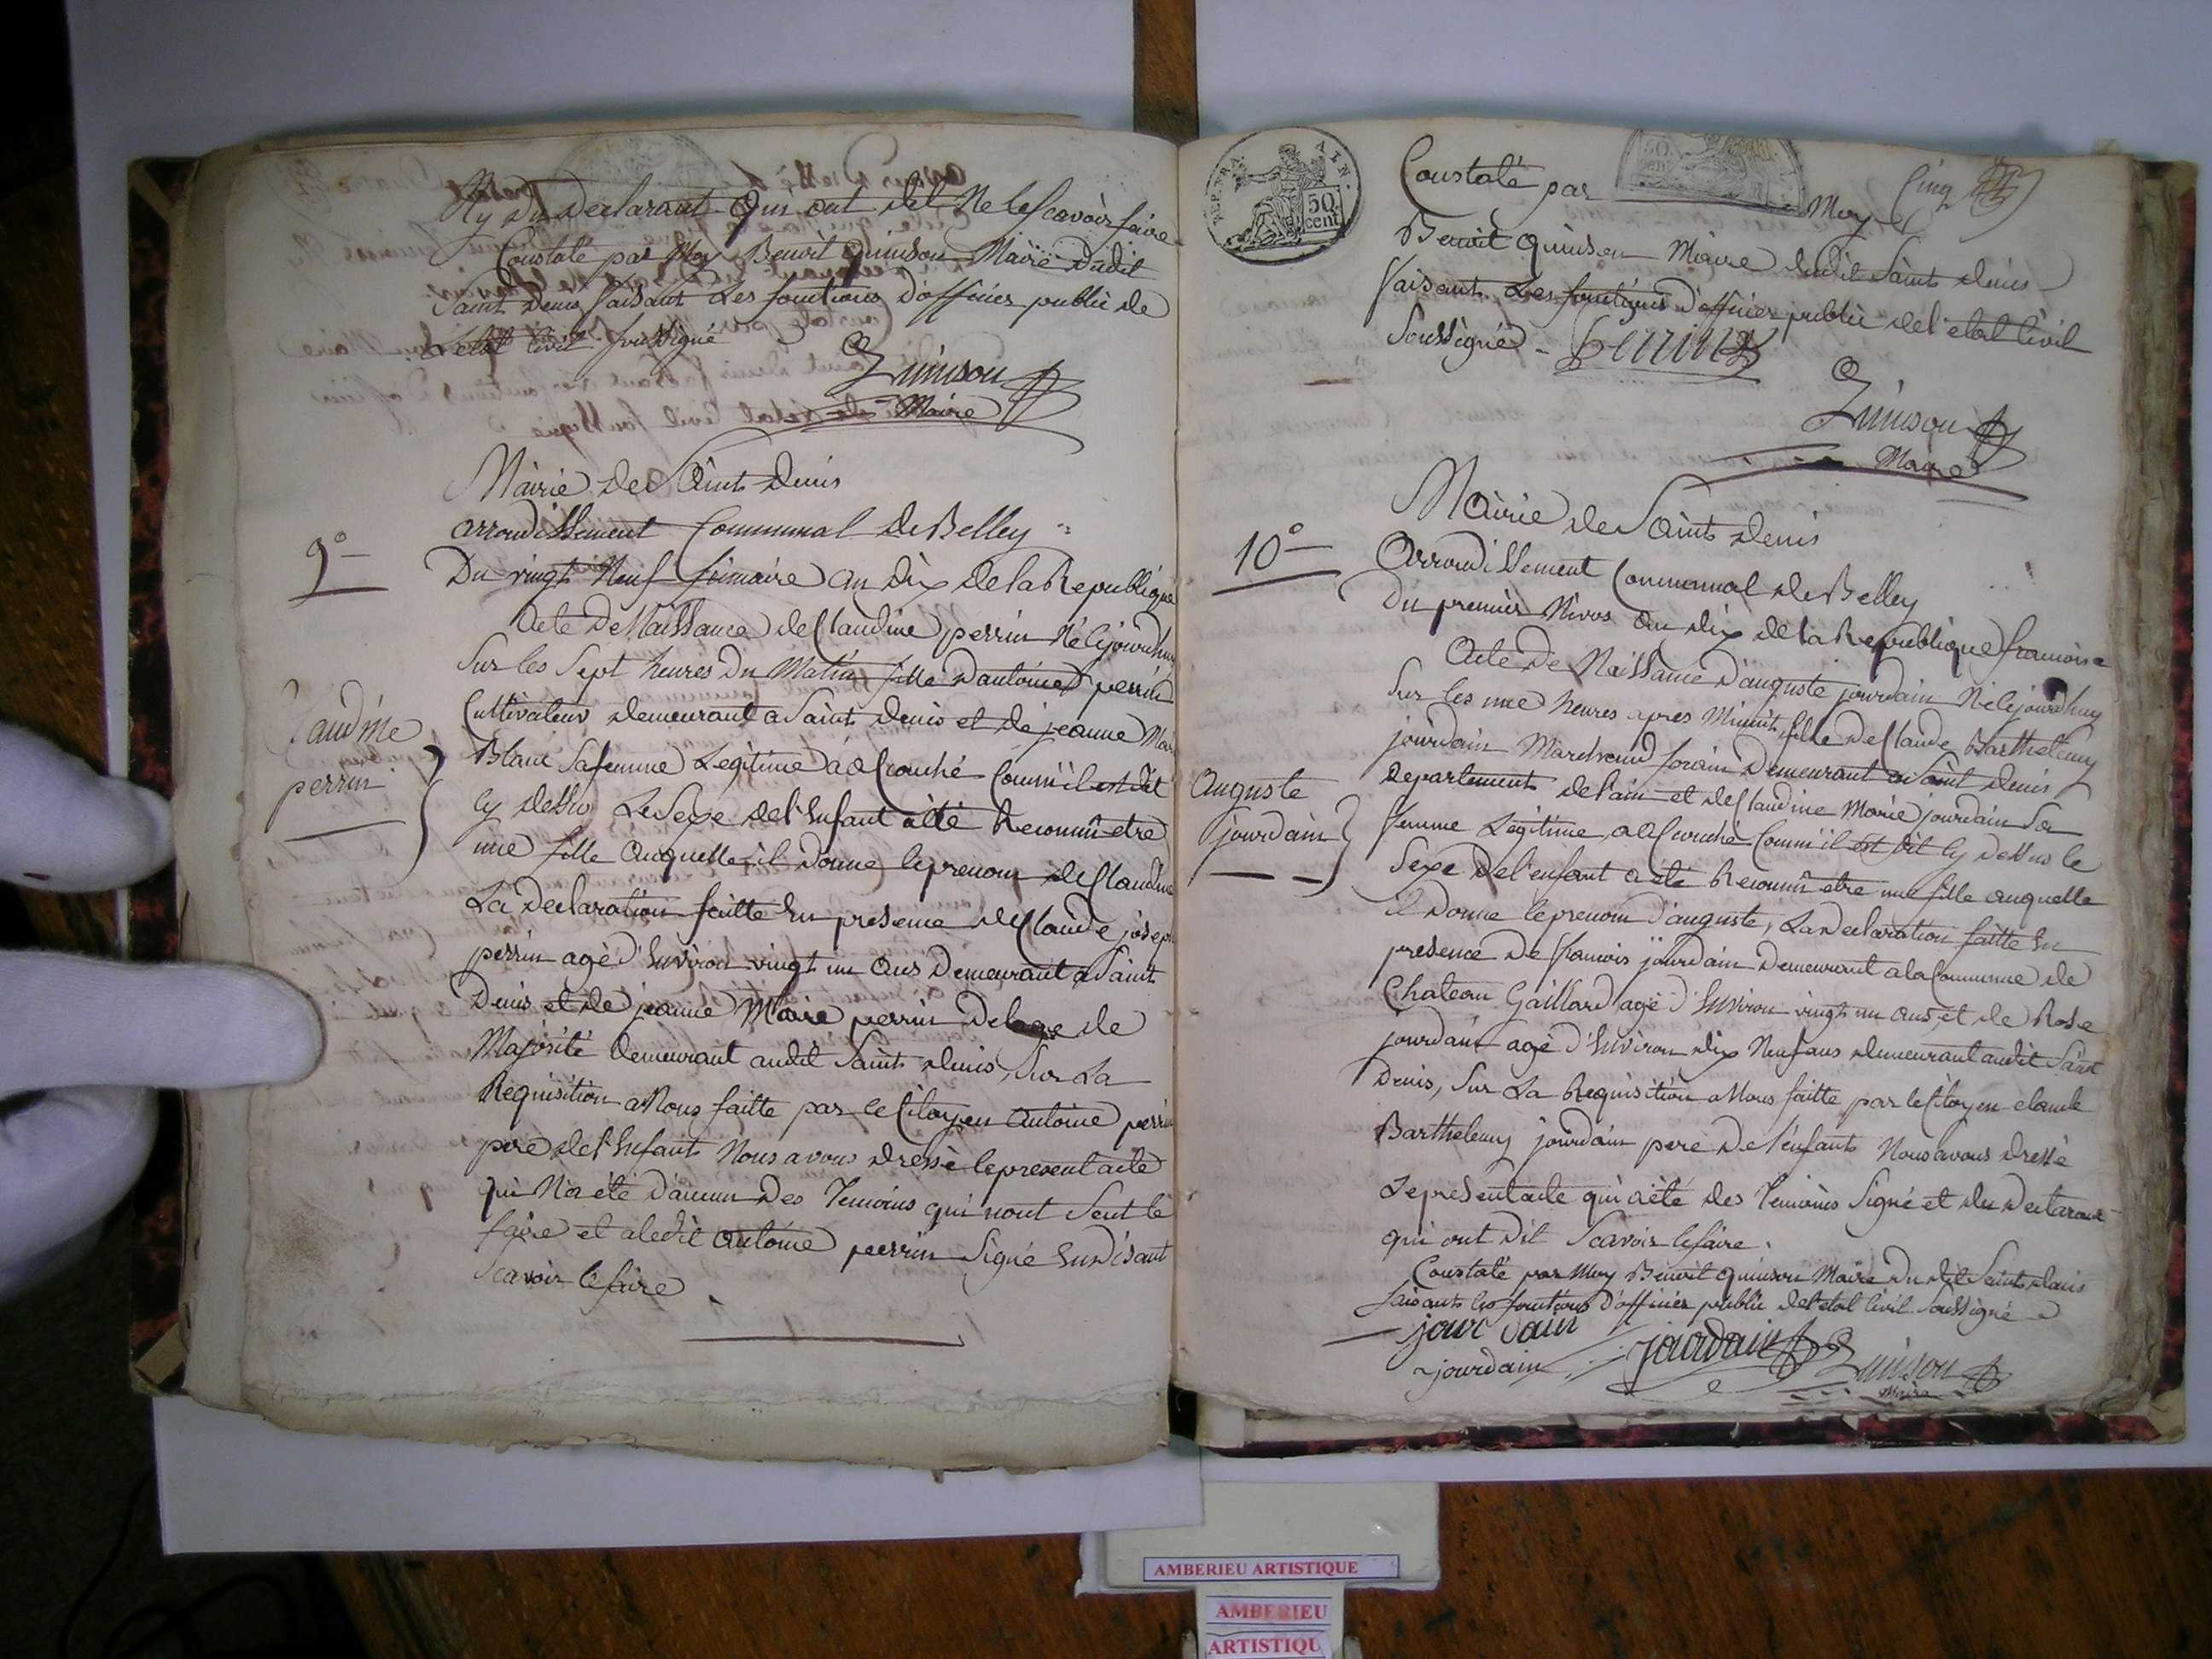 Ny du Declarant Qui ont dit Ne le Scavoir faire
Constaté par Moy Benoit quinson Maire dudit
Saint Denis faisant Les fonctions D'officier public de
L'etat Civil soussigné
Quinson
Maire
Mairie de Saint denis
arrondissement Communal de Belley
9°
Du vingt Neuf frimaire an Dix de la Republique
Acte De Naissance de Claudine perrin Né Cejourdhuy
Sur les Sept heures Du Matin fille Dantoine perrin
Cultivateur demeurant a Saint denis et de jeanne Mari
Claudine
perrin
Blanc Safemme Legitime a acCouché Comm'il est dit
Cy dessus Le Sexe de l'Enfant a été Reconnu etre
une fille Auquelle il Donne le prenom de Claudine
La Declaration faitte En presence de Claude joseph
perrin agé d'Environ vingt un ans Demeurant a Saint
Denis et de jeanne Marie perrin De lage de
Majorité demeurant audit Saint denis, Sur La
Requisition a Nous faitte par le Citoyen antoine perrin
pere de l'Enfant Nous avons dressé le present acte
qui N'a été d'aucun Des Temoins qui n'ont Seut le
faire et a ledit antoine perrin Signé En Disant
Scavoir le faire
REP. FRA.
AIN.
50
cent.
50
cent.
Cinq
Constaté par Moy
Benoit quinson Maire dudit Saint denis
faisant Les fonctions D'officier public de l'etat Civil
Soussigné
Perrin
Quinson
Maire
Mairie de Saint denis
10°
Arrondissement Communal de Belley
Du premier Nivos an dix de la Republique francoise
Acte De Naissance D'auguste jourdain Né Cejourdhuy
Sur les une heures apres Minuit, fille de Claude Barthelemy
jourdain Marchand forain Demeurant a Saint denis
Auguste
jourdain
departement de l'ain et de Claudine Marie jourdain Sa
femme Legitime a acCouché Comm'il est dit Cy Dessus le
Sexe De l'enfant a été Reconnu etre une fille auquelle
il Donne le prenom d'auguste, La Declaration faitte En
presence De francois jourdain Demeurant a la Commune de
Chateau Gaillard agé d'Environ vingt un ans, et de Rose
jourdain agé d'Environ dix Neuf ans demeurant audit Saint
Denis, Sur La Requisition a Nous faitte par le Citoyen claude
Barthelemy jourdain pere De l'enfant Nous avons dressé
Le present acte qui a été des Temoins Signé et du Declarant
qui ont Dit Scavoir le faire.
Constaté par Moy Benoit quinson Maire Du dit Saint denis
faisant les fonctions D'officier public de l'etat Civil Soussigné
jour dain
jourdain
jourdain
Quinson
Maire
AMBERIEU ARTISTIQUE
AMBERIEU
ARTISTIQU